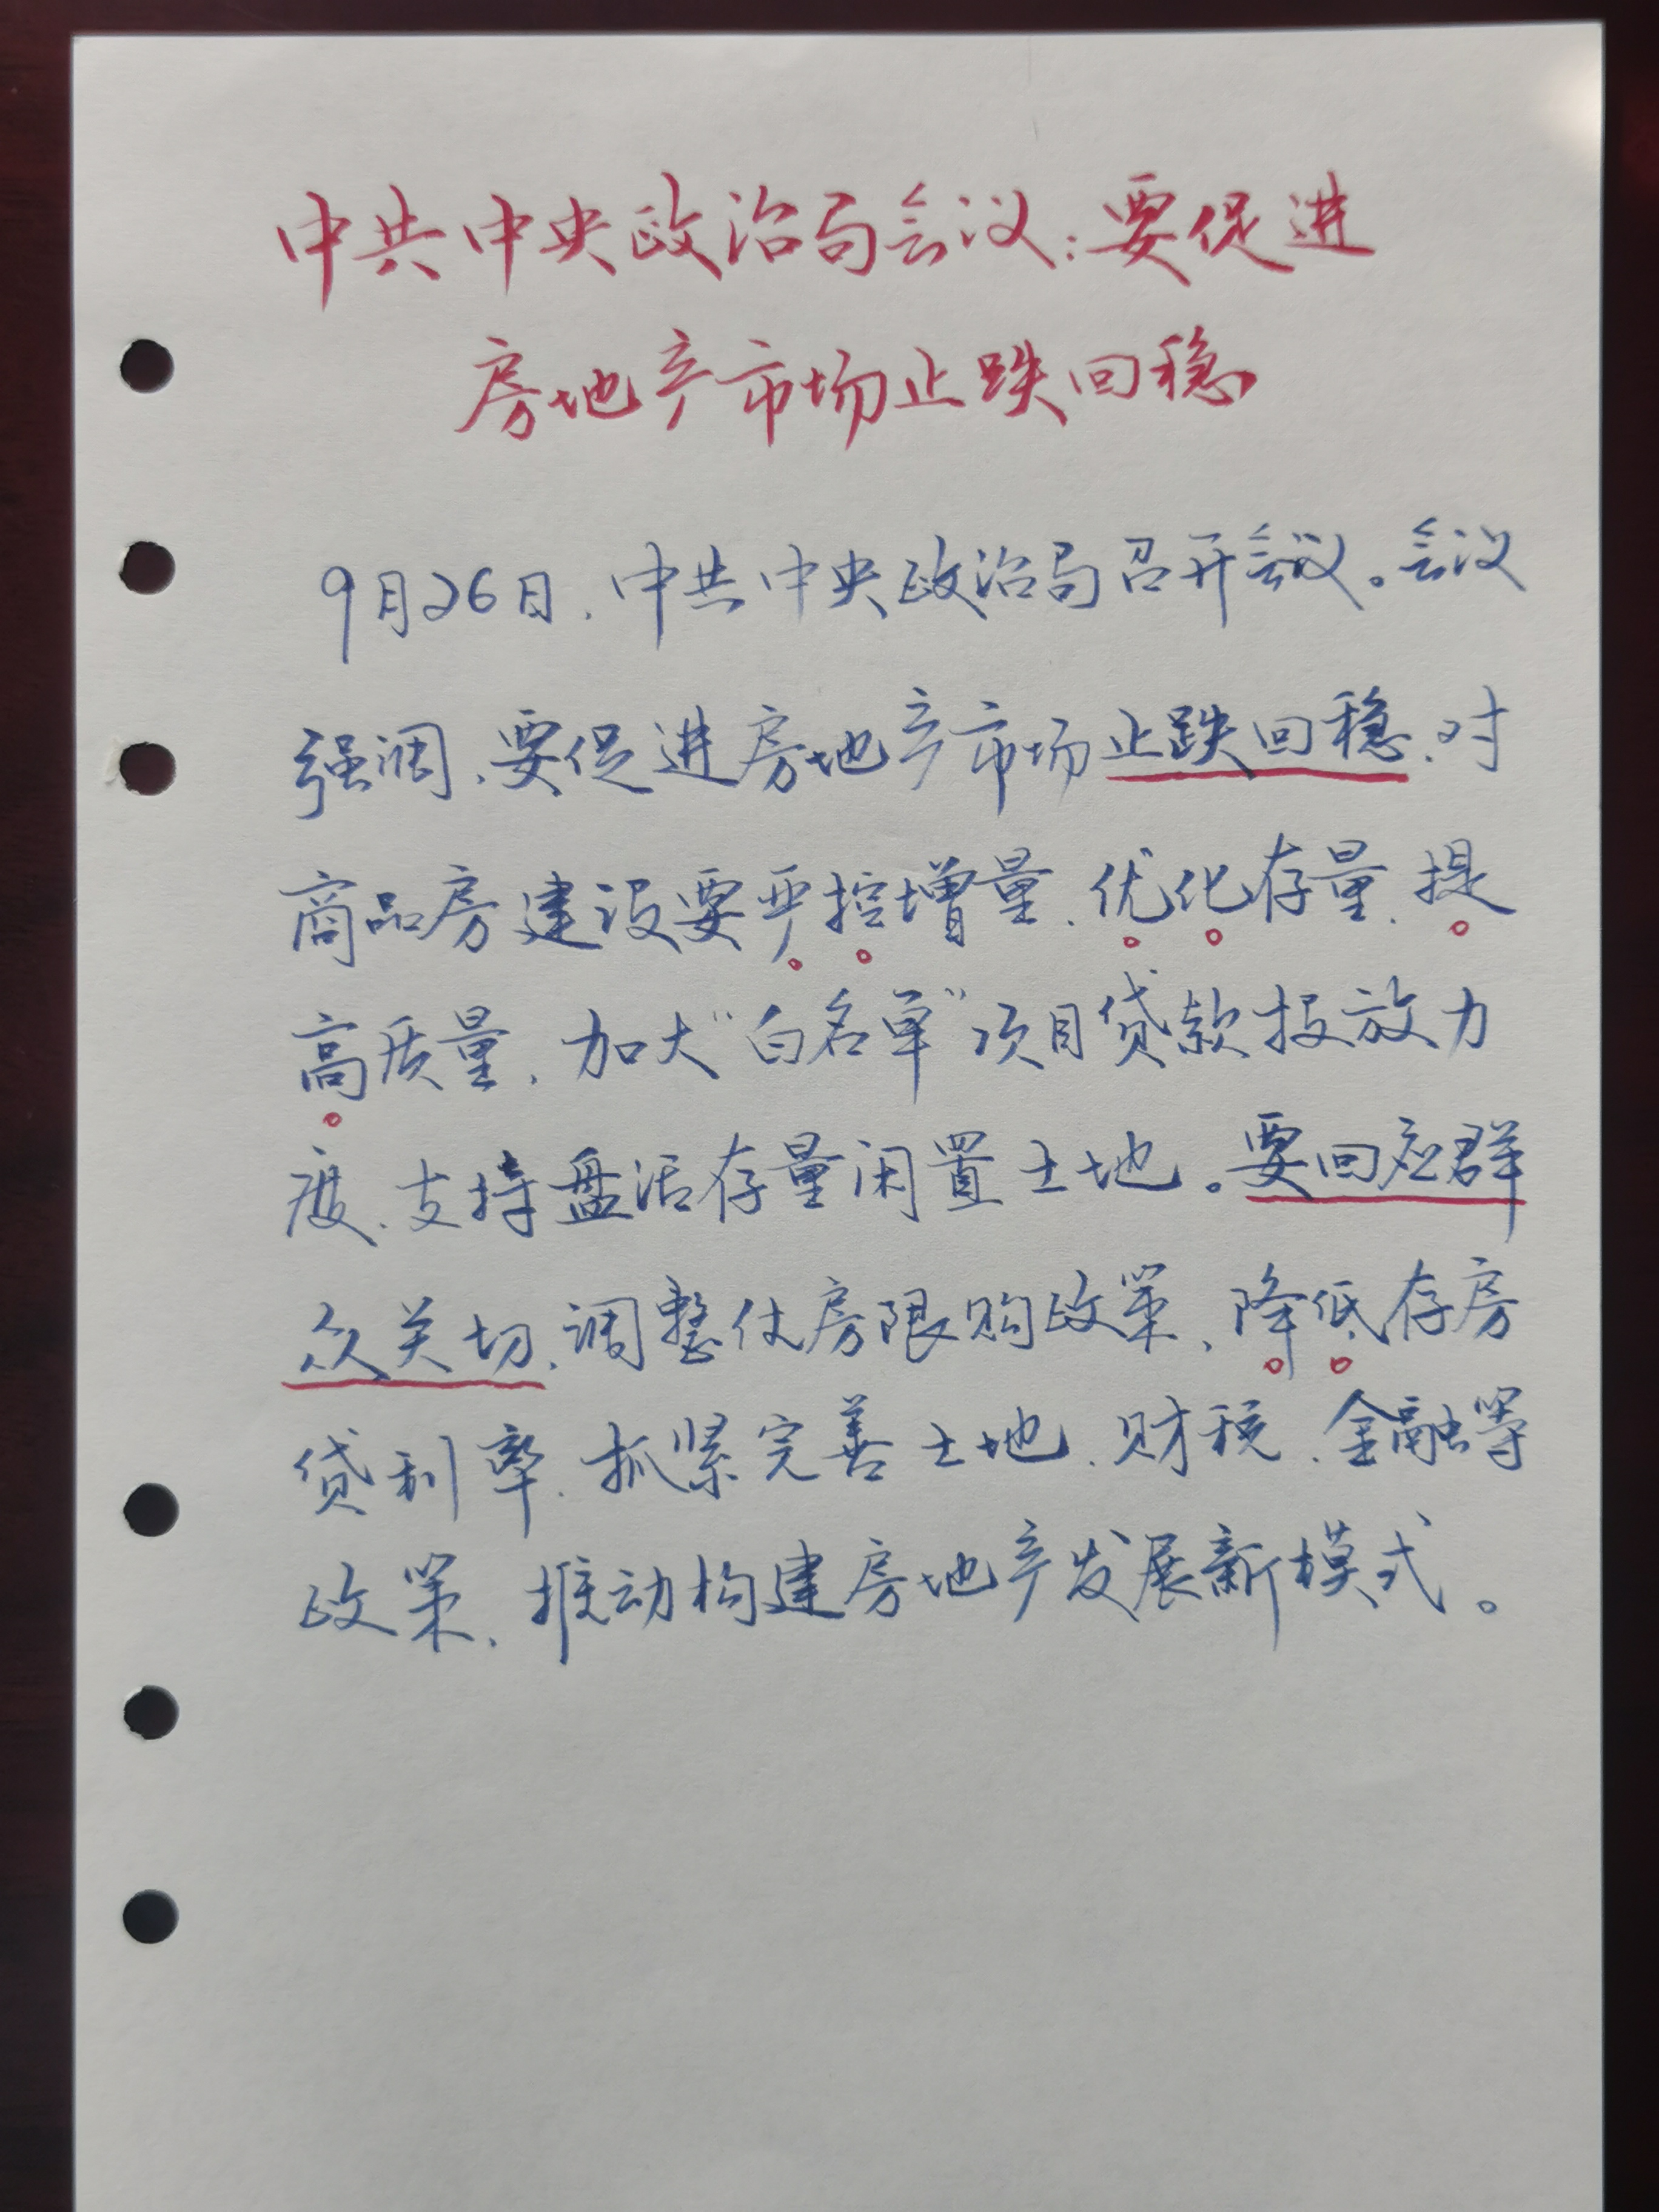 中共中央政治局会议:要促进
房地产市场止跌回稳
9月26日,中共中央政治局召开会议。会议
强调,要促进房地产市场止跌回稳,对
商品房建设要严控增量、优化存量、提
高质量,加大“白名单”项目贷款投放力
度,支持盘活存量闲置土地。要回应群
众关切,调整住房限购政策,降低存房
贷利率,抓紧完善土地、财税、金融等
政策,推动构建房地产发展新模式。